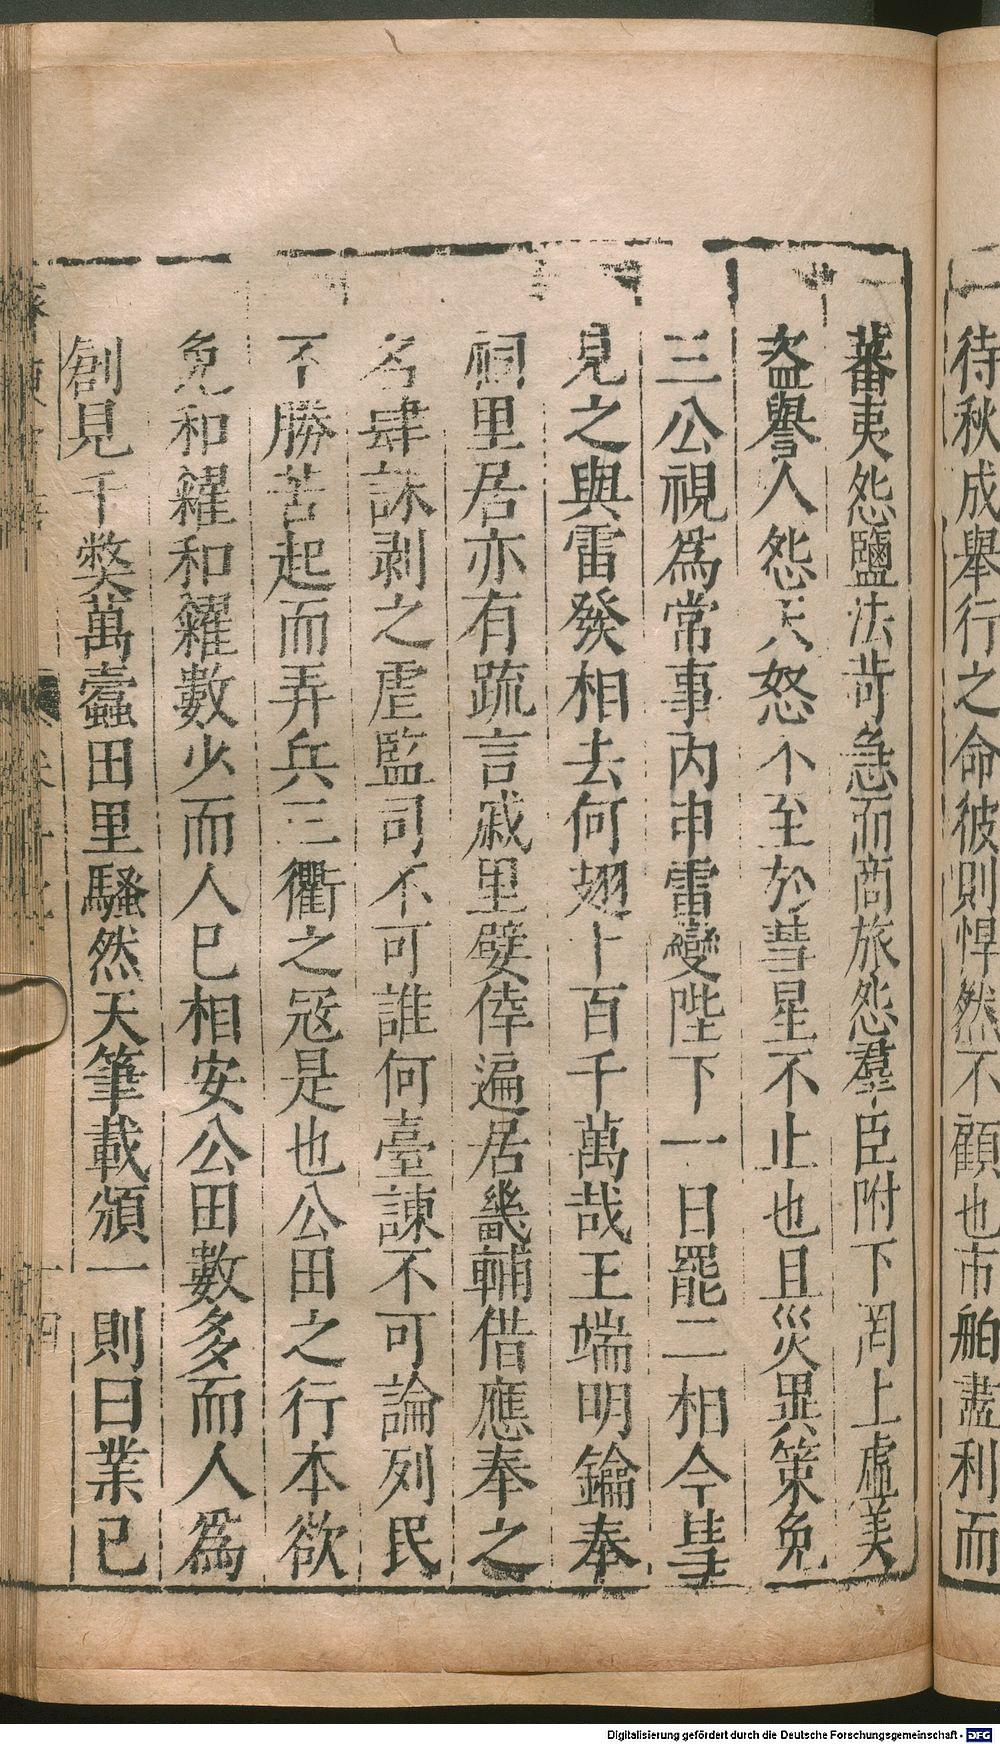 待秋成舉行之命彼則悍然不顧也市舶盡利而
蕃夷怨鹽法苛急而商旅怨羣臣附下罔上虛美
盗譽人怨天怒不至於彗星不止也且災異策免
三公視爲常事丙申雷變陛下一日罷二相今彗
見之與雷發相去何翅十百千萬哉王端明鑰奉
祠里居亦有疏言戚里嬖倖遍居畿輔借應奉之
名肆誅剥之虐監司不可誰何臺諫不可論列民
不勝苦起而弄兵三衢之冦是也公田之行本欲
免和糴和糴數少而人已相安公田數多而人爲
創見千獘萬蠧田里騷然天筆載頒一則曰業已
Digitalisierung gefördert durch die Deutsche Forschungsgemeinschaft - DFG